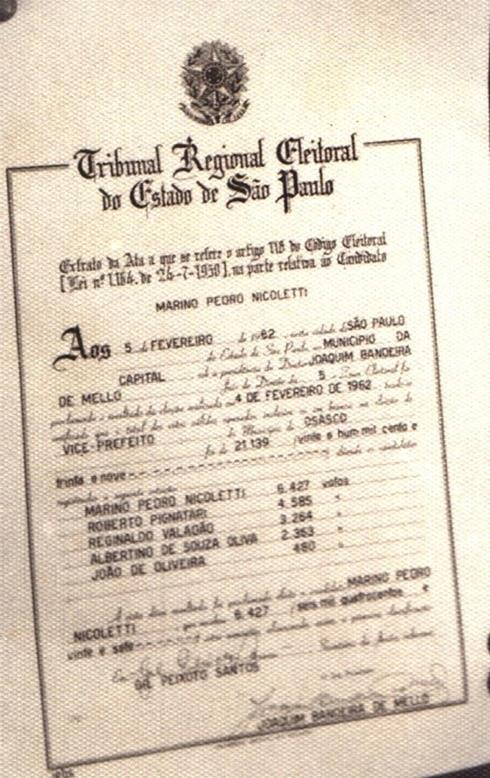 Tribunal Regional Eleitoral
do Estado de São Paulo
Extrato da Ata a que se refere o artigo 118 do Código Eleitoral
[Lei nº 1.164, de 24-7-1950], na parte relativa ao Candidato
MARINO PEDRO NICOLETTI
Aos 5 de FEVEREIRO de 1962, nesta cidade de SÃO PAULO
do Estado de São Paulo, MUNICIPIO DA
CAPITAL sob a presidência do Doutor JOAQUIM BANDEIRA
DE MELLO Juiz de Direito da 5 Zona Eleitoral foi
proclamado o resultado da eleição realizada 4 DE FEVEREIRO DE 1962
verificado que o total dos votos válidos apurados, inclusive os em branco, na eleição de
VICE-PREFEITO do Município de OSASCO
foi de 21.139 /vinte e hum mil cento e
trinta e nove
MARINO PEDRO NICOLETTI 6.427 votos
ROBERTO PIGNATARI 4.585 "
REGINALDO VALADÃO 3.264 "
ALBERTINO DE SOUZA OLIVA 2.363 "
JOÃO DE OLIVEIRA 480 "
resultado foi proclamado eleito o candidato MARINO PEDRO
NICOLETTI 6.427 /seis mil quatrocentos e
vinte e sete
GIL PEIXOTO SANTOS
JOAQUIM BANDEIRA DE MELLO